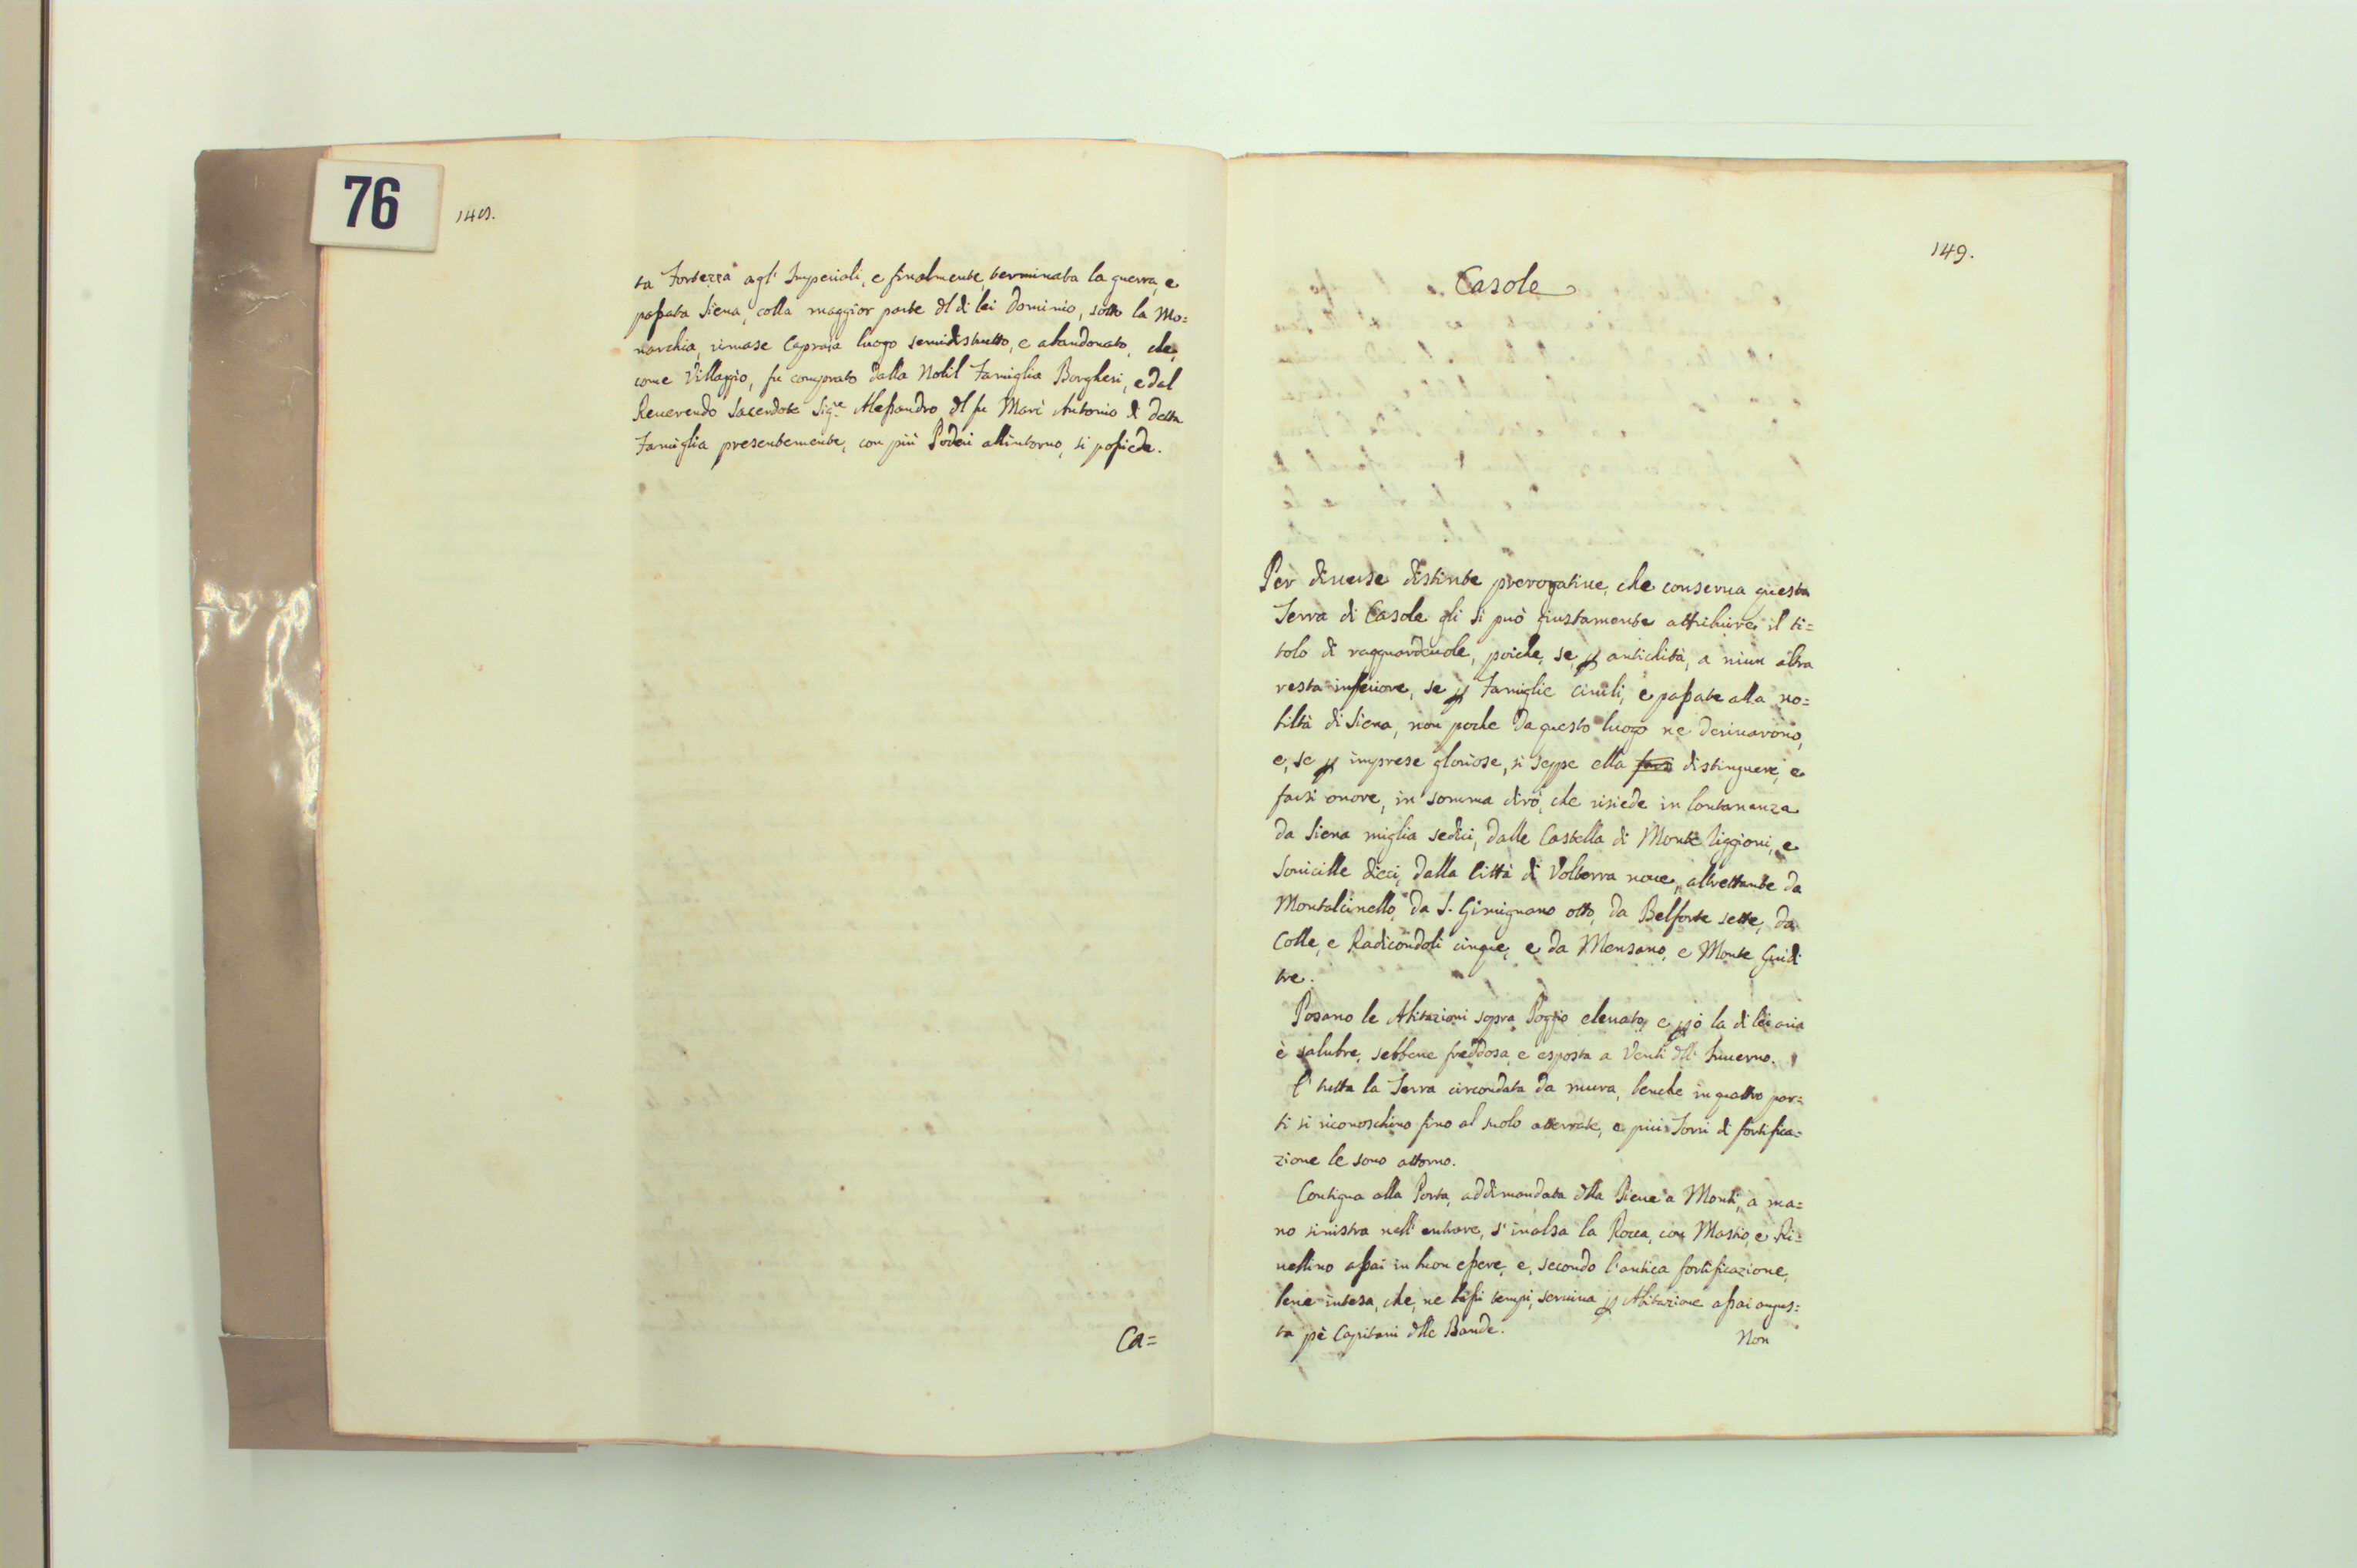 76
148.
ta Fortezza agl' Imperiali, e finalmente, terminata la guerra, e
passata Siena, colla maggior parte dl di lei Dominio, sotto la Mo=
narchia, rimase Capraia luogo semidistrutto, e abandonato, che,
come Villaggio, fu comprato dalla Nobil Famiglia Borghesi, e dal
Reverendo Sacerdote Sig.re Alessandro dl fu Marc' Antonio di detta
Famiglia presentemente, con più Poderi all'intorno, si possiede.
Ca=
149.
Casole
Per diverse distinte prerogative, che conserva questa
Terra di Casole gli si può giustamente attribuire il ti=
tolo di ragguardevole, poiche, se p antichità, a niun altra
resta inferiore, se p Famiglie civili, e passate alla no=
biltà di Siena, non poche da questo luogo ne derivarono,
e, se p imprese gloriose, si seppe ella farsi distinguere, e
farsi onore, in somma dirò, che risiede in lontananza
da Siena miglia sedici, dalle Castella di Monte Riggioni, e
Sovicille dieci, dalla Città di Volterra nove, altrettante da
Montalcinello, da S. Gimignano otto, da Belforte sette, da
Colle, e Radicondoli cinque, e da Mensano, e Monte Guidi
tre.
Posano le Abitazioni sopra Poggio elevato, e pò la di lei aria
è salubre, sebbene freddosa, e esposta a Venti dll' Inverno.
E' tutta la Terra circondata da mura, benche in quattro par=
ti si riconoschino fino al suolo atterrate, e più Torri di fortifica=
zione le sono attorno.
Contigua alla Porta, addimandata dlla Pieve a Monti, a ma=
no sinistra nell' entrare, s' inalsa la Rocca, con Mastio, e Ri=
vellino assai in buon essere, e, secondo l'antica fortificazione,
bene intesa, che, ne bassi tempi, serviva p Abitazione assai angus=
ta pè Capitani dlle Bande.
Non